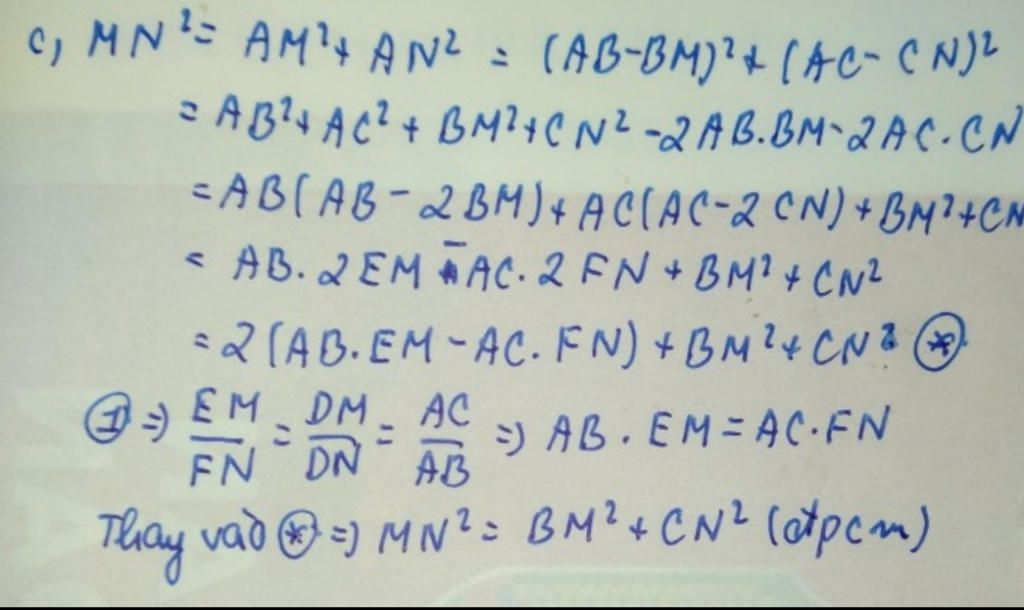 c, MN² = AM² + AN² = (AB-BM)² + (AC-CN)²
= AB² + AC² + BM² + CN² - 2AB.BM - 2AC.CN
= AB(AB - 2BM) + AC(AC - 2CN) + BM² + CN
= AB. 2EM - AC. 2FN + BM² + CN²
= 2(AB.EM - AC.FN) + BM² + CN² (*)
① => EM/FN = DM/DN = AC/AB => AB.EM = AC.FN
Thay vào (*) => MN² = BM² + CN² (đtpcm)